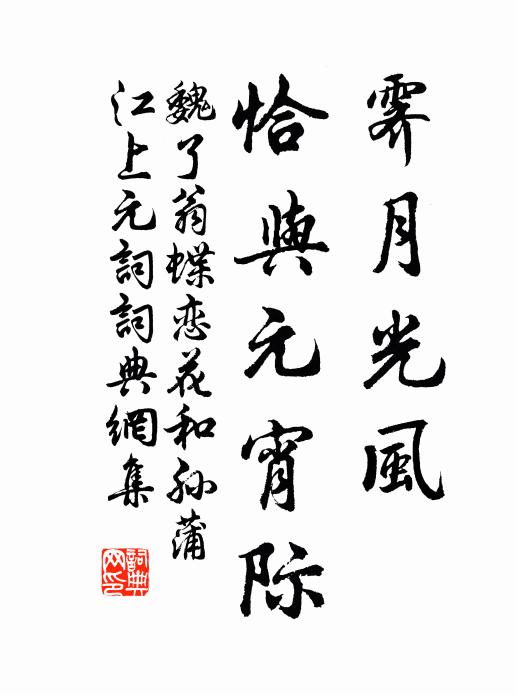 霽月光風
恰與元宵际
魏了翁蝶恋花和孙蒲
江上元詞詞典網集
詞典网印